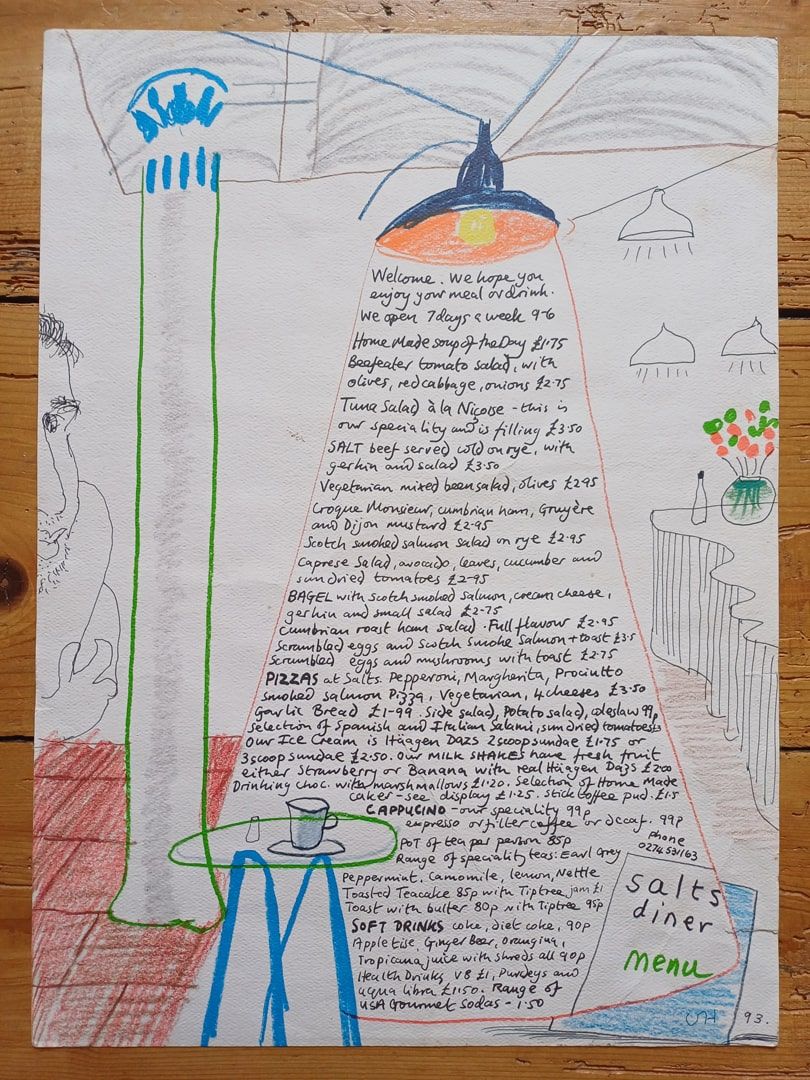 Welcome. We hope you
enjoy your meal or drink.
We open 7 days a week 9-6
Home Made soup of the Day £1.75
Beefeater tomato salad, with
olives, red cabbage, onions £2.75
Tuna Salad à la Niçoise - this is
our speciality and is filling £3.50
SALT beef served cold on rye, with
gerkin and salad £3.50
Vegetarian mixed bean salad, olives £2.95
Croque Monsieur, cumbrian ham, Gruyère
and Dijon mustard £2.95
Scotch smoked salmon salad on rye £2.95
Caprese Salad, avocado, leaves, cucumber and
sun dried tomatoes £2.95
BAGEL with scotch smoked salmon, cream cheese,
gerkin and small salad £2.75
Cumbrian roast ham salad. Full flavour £2.95
Scrambled eggs and Scotch smoke salmon + toast £3.5
Scrambled eggs and mushrooms with toast £2.75
PIZZAS at Salts. Pepperoni, Margherita, Prociutto
smoked salmon Pizza, Vegetarian, 4 cheeses £3.50
Garlic Bread £1.99. Side salad, Potato salad, coleslaw 99p
selection of Spanish and Italian Salami, sun dried tomatoes
Our Ice Cream is Häagen Dazs 2 scoop sundae £1.75 or
3 scoop sundae £2.50. Our MILK SHAKES have fresh fruit
either Strawberry or Banana with real Häagen Dazs £2.00
Drinking choc. with marshmallows £1.20. Selection of Home Made
cakes - see display £1.25. Stick toffee pud. £1.5
CAPPUCINO - our speciality 99p
espresso or filter coffee or decaf. 99p
Pot of tea per person 85p
Range of speciality teas: Earl Grey
Peppermint, Camomile, lemon, Nettle
Toasted Teacake 85p with Tiptree jam £1
Toast with butter 80p with Tiptree 95p
SOFT DRINKS coke, diet coke, 90p
Apple tise, Ginger Beer, orangina,
Tropicana juice with shreds all 90p
Health Drinks V8 £1, Purdeys and
aqua libra £1.50. Range of
USA Gourmet Sodas - 1.50
phone
0274 531163
salts
diner
menu
DH 93.